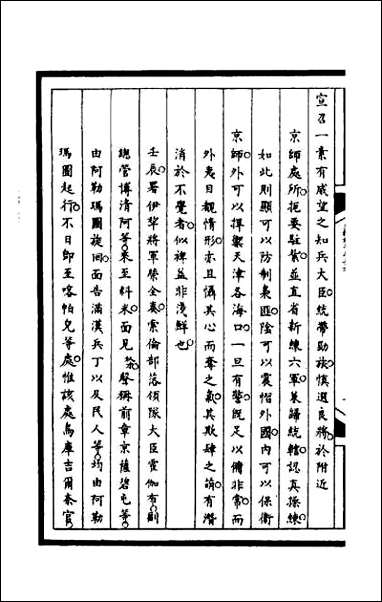 宣召一素有威望之知兵大臣統帶勁旅慎選良將於附近
京師處所扼要駐紮並直省新練六軍兼歸統轄認真操練
如此則顯可以防制梟匪陰可以震慴外國內可以保衛
京師外可以捍禦天津各海口一旦有警既足以備非常而
外夷目覩情形亦且懾其心而奪之氣其欺肆之萌有潛
消於不覺者似裨益非淺鮮也
壬辰署伊犂將軍榮全奏索倫部落領隊大臣霍伽布副
總管博清阿等來至科米面見榮聲稱前章京薩碧屯等
由阿勒瑪圖旋回面告滿漢兵丁以及民人等均由阿勒
瑪圖起行不日即至喀帕兒等處惟該處烏庫吉爾泰官